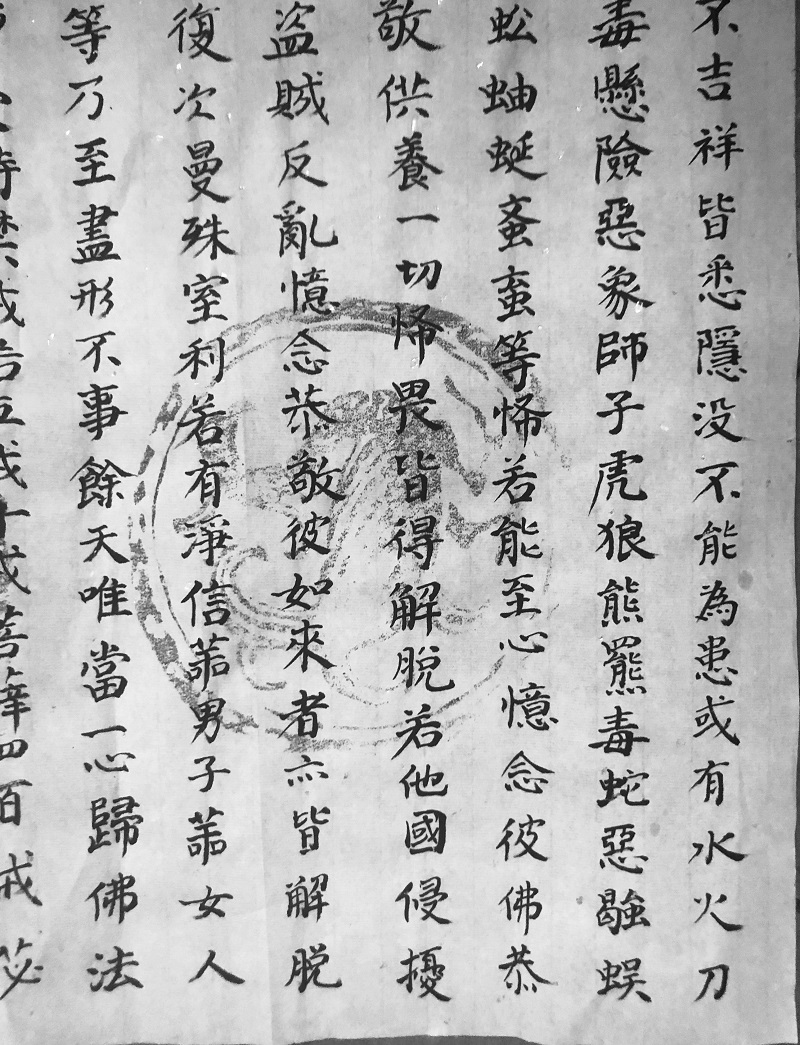 不吉祥皆悉隱没不能為患或有水火刀
毒懸險惡象師子虎狼熊羆毒蛇惡蠍蜈
蚣蚰蜒蚉䖟等怖若能至心憶念彼佛恭
敬供養一切怖畏皆得解脱若他國侵擾
盗賊反亂憶念恭敬彼如來者亦皆解脱
復次曼殊室利若有淨信善男子善女人
等乃至盡形不事餘天唯當一心歸佛法
持禁戒若五戒十戒菩薩四百戒苾